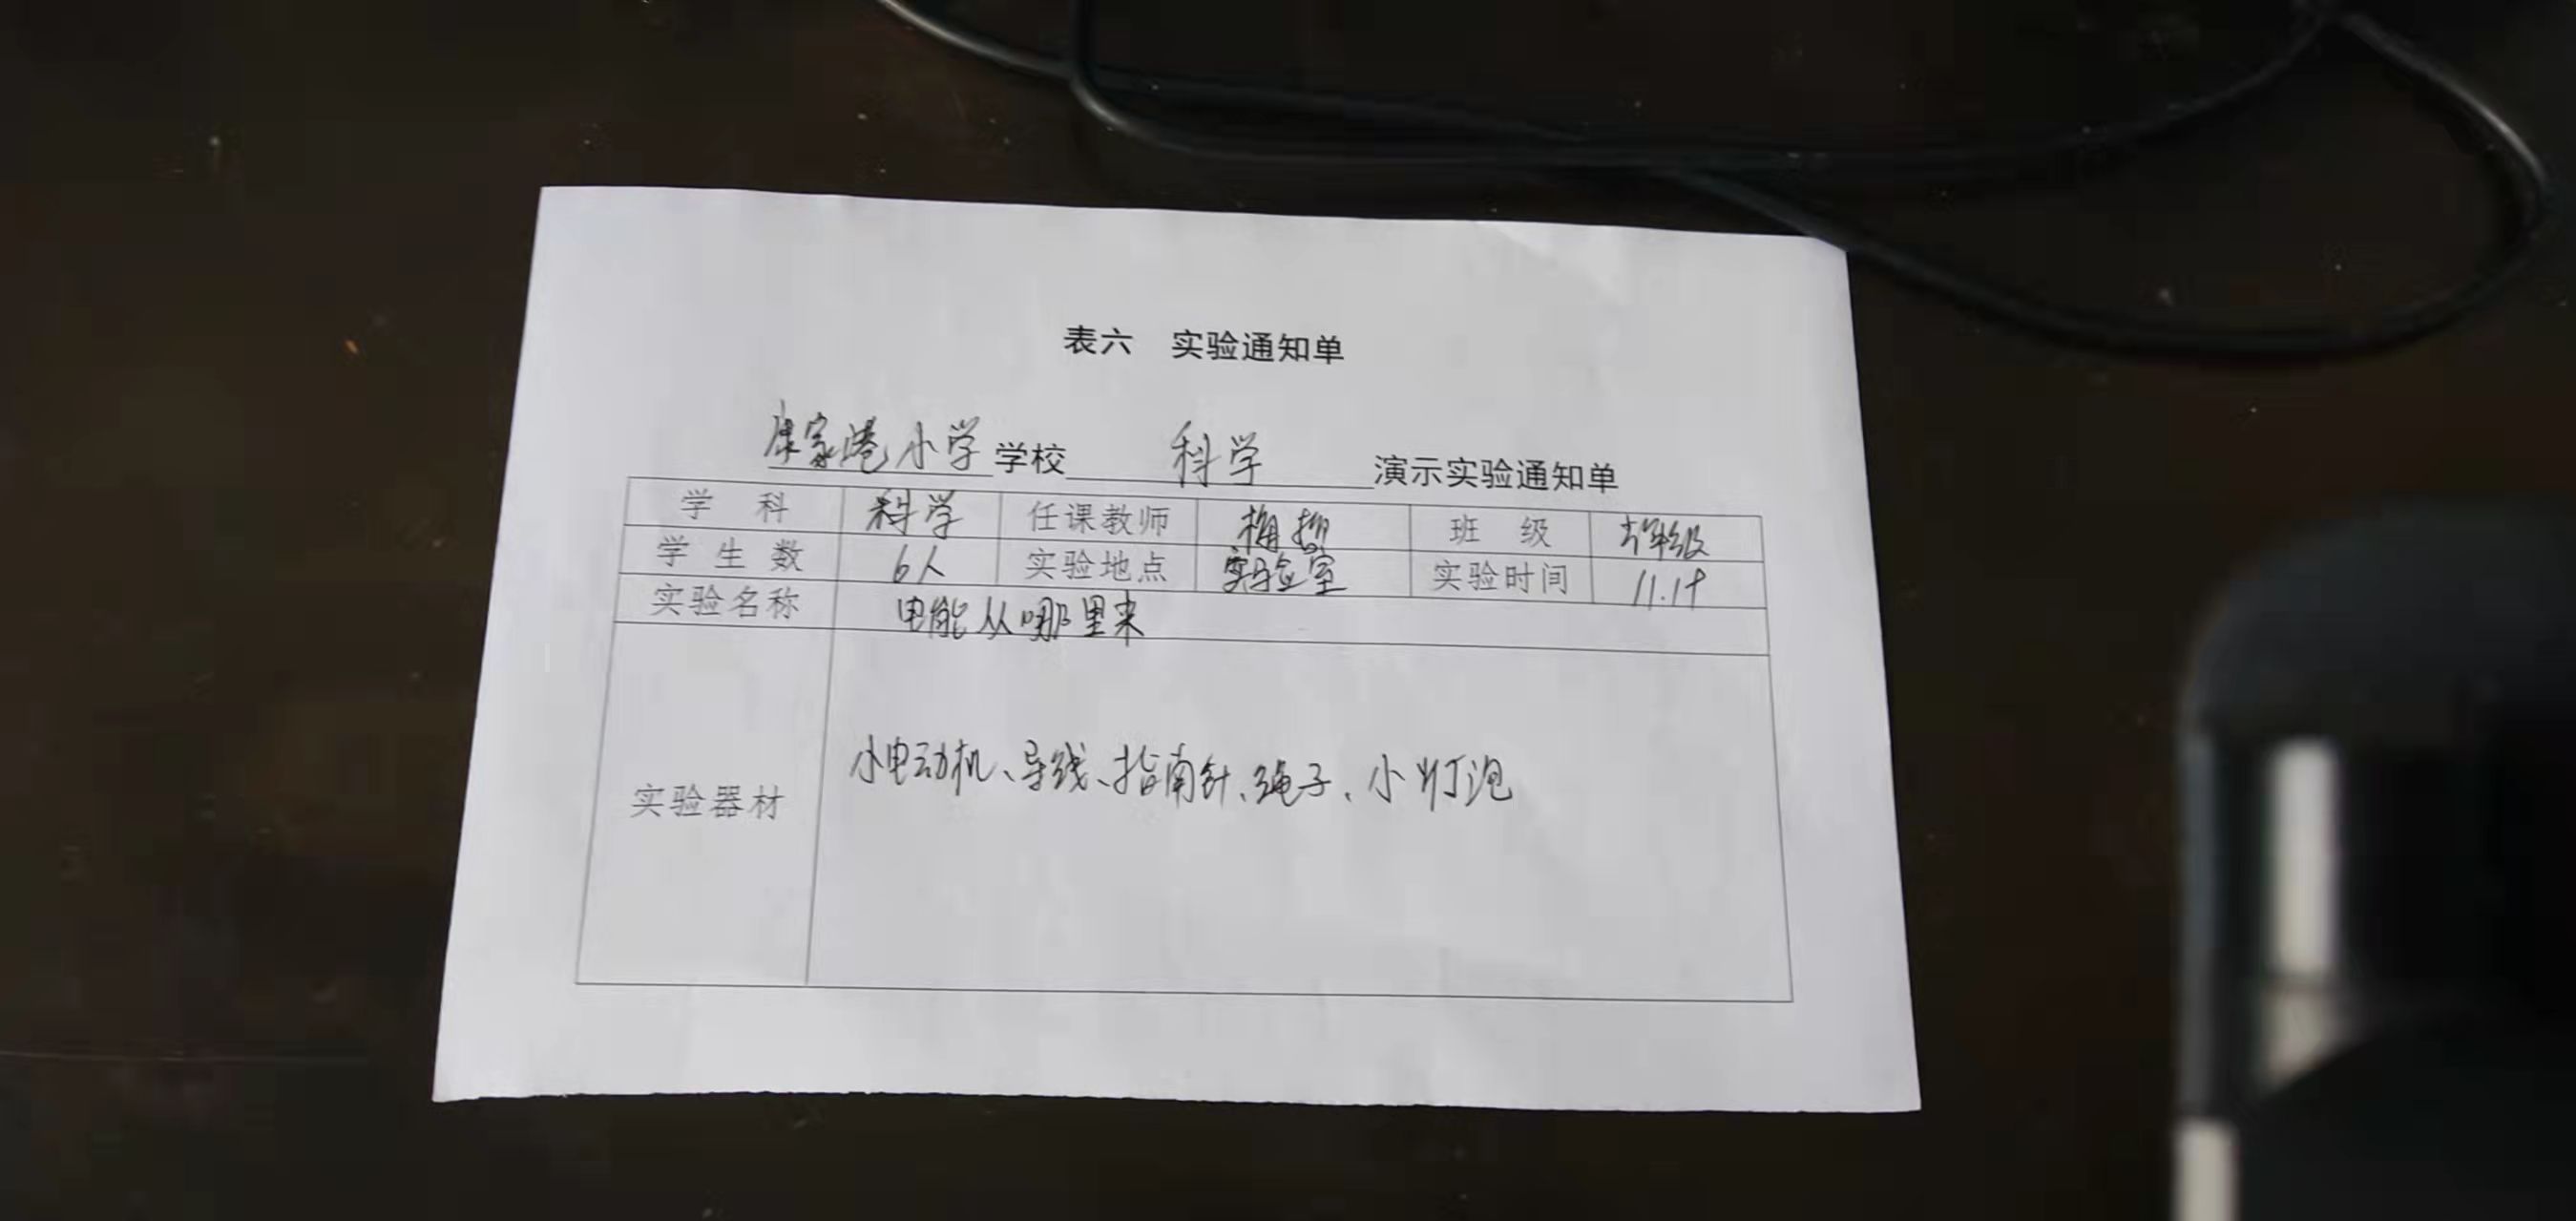 表六 实验通知单
康家港小学学校 科学 演示实验通知单
学科 科学 任课教师 班级 六年级
学生数 6人 实验地点 实验室 实验时间
实验名称 电能从哪里来
实验器材 小电动机、导线、指南针、绳子、小灯泡